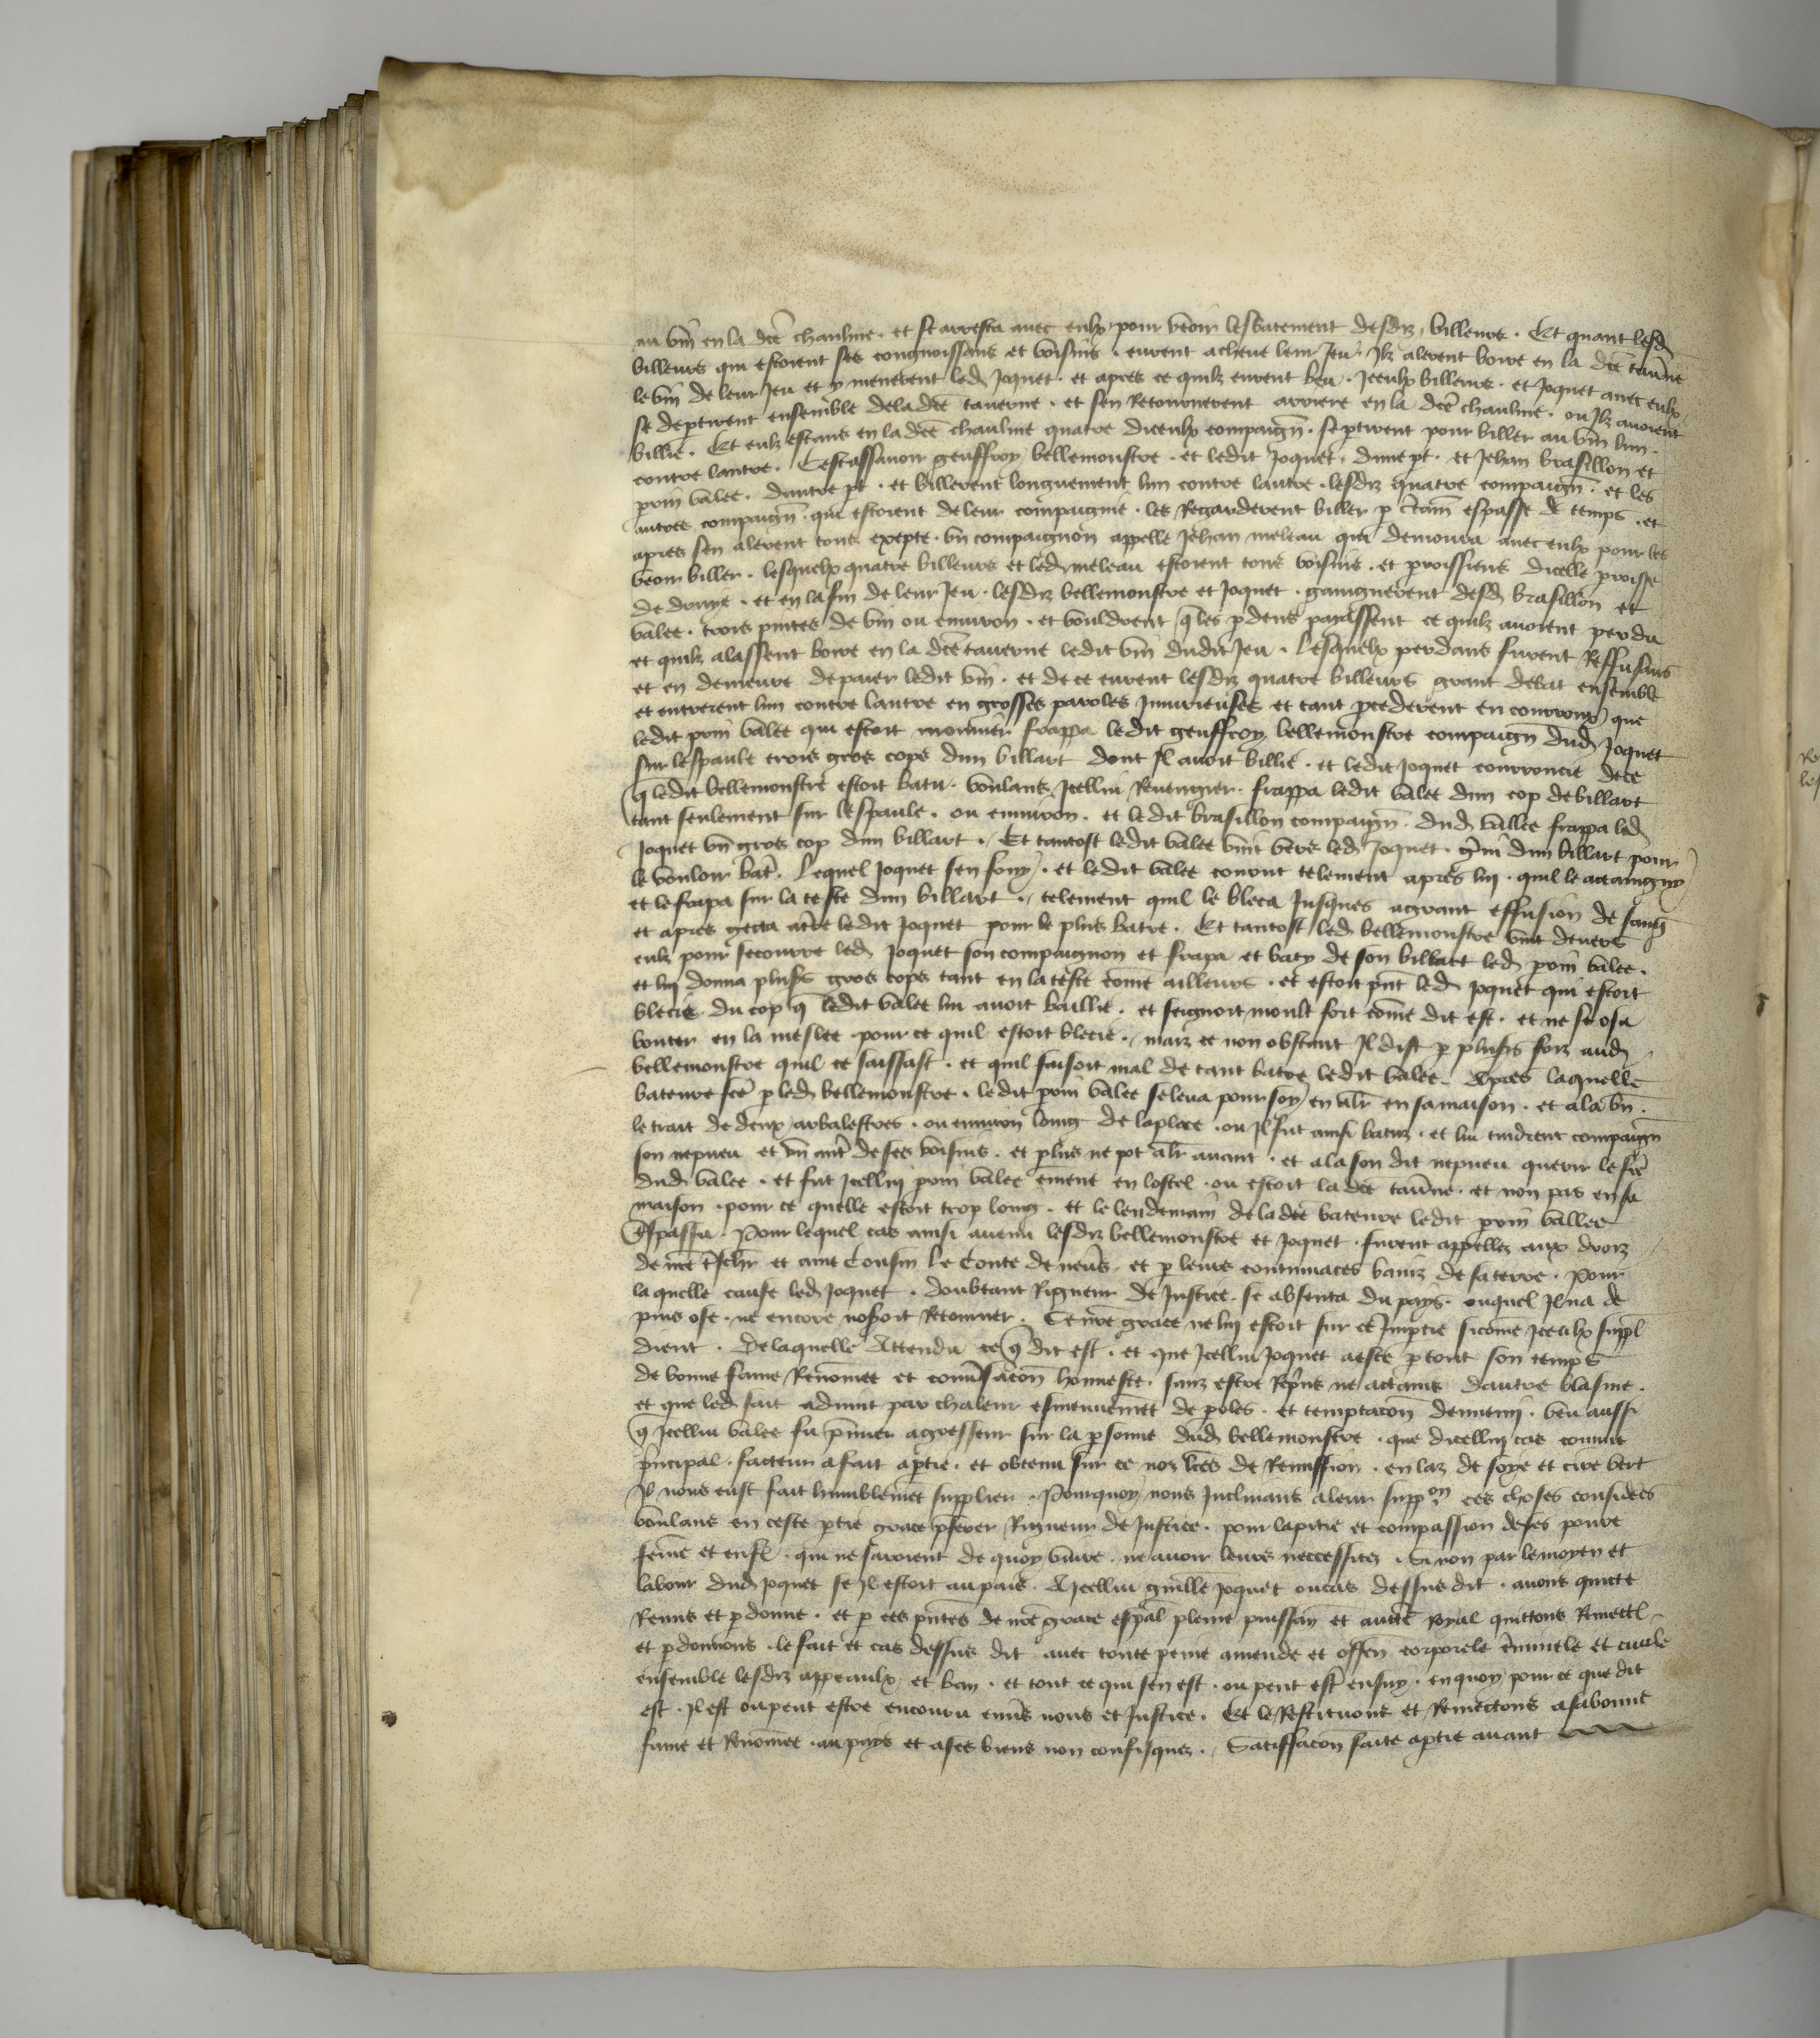 au vin en la dce chaulme . et se arresta avec eulx pour veoir lesbatement desdiz billeurs . Et quant lesd
billeurs qui estoient ses congnoissans et voisins . eurent acheve leur Jeu . Ilz alerent boire en la dce tavne
le vin de leur Jeu et y menerent led Joquet . et apres ce quilz eurent beu . Iceulx billeurs . et Joquet avec eulx
se deptirent ensemble dela dce taverne . et sen Retournerent arriere en la dce chaulme . ou Ilz avoient
billie . Et eulx estans en la dce chaulme quatre diceulx compaign . se ptirent pour biller au vin lun .
contre lautre . Cestassavoir geuffroy bellemonstre . et ledit Joquet . dune pt . et Jehan brasillon et
pin valee . dautre pt . et billerent longuement lun contre lautre . lesdiz quatre compaign . et les
autres compaign . qui estoient de leur compaignie . les Regarderent biller p ctain espasse de temps . et
apres sen alerent tous exepte . vn compaignon appelle Jehan meleau qui demoura avec eulx pour les
veoir biller . lesquelx quatre billeurs et led meleau estoient tous voisins . et proissiens dicelle proisse
de druye . et en la fin de leur Jeu . lesdiz bellemonstre et Joquet . gaignerent desd brasillon et
valee . trois pintes de vin ou environ . et vouldrent q les pdens paiassent ce quilz avoient perdu
et quilz alassent boire en la dce taverne ledit vin dudit Jeu . Lesquelx perdans furent Reffusans
et en demeure de paier ledit vin . et de ce eurent lesdiz quatre billeurs grant debat ensemble
et entrerent lun contre lautre en grosses paroles Iniurieuses et tant pcederent en courroux que
ledit pin valee qui estoit frappa ledit geuffroy bellemonstre compaign dud Joquet
sur lespaule trois gros cops dun billart dont Il avoit billie . et ledit Joquet courroucie de ce
q ledit bellemonstre estoit batu . voulans Icellui Revengier . frappa ledit valee dun cop de billart
tant seulement sur lespaule . ou environ . et ledit brasillon compaign . dud vallee frappa led
Joquet vn gros cop dun billart . Et tantost ledit valee vint vers led Joquet . garni dun billart pour
le vouloir batr . Lequel Joquet sen fouy . et ledit valee courut telement apres lui . quil le actaingny
et le frapa sur la teste dun billart . telement quil le bleca Jusques a grant effusion de sang
et apres gecta a tre ledit Joquet pour le plus batre . Et tantost led bellemonstre vint devers
eulx pour secourre led Joquet son compaignon et frapa et baty de son billart led pin valee .
et lui donna plusrs gros cops tant en la teste come ailleurs . et estoit pnt led Joquet qui estoit
blecie . du cop q ledit valee lui avoit baillie . et seignoit moult fort come dit est . et ne se osa
bouter en la meslee pour ce quil estoit blecie . maiz ce non obstant Il dist p plusrs foiz aud
bellemonstre quil se laissast . et quil faisoit mal de tant batre ledit valee . Apres laquelle
bateure fce p led bellemonstre . ledit pin valee se leva pour soy en alr en sa maison . et ala vn .
le trait de deux arbalestres . ou environ loing de la place . ou Il fut ainsi batuz . et lui tindrent compaign
son nepveu et vn autr de ses voisins . et plus ne pot alr avant . et ala son dit nepveu querir le frere
dud valee . et fut Icellui pin valee emene en lostel . ou estoit la dce tavne . et non pas en sa
maison . pour ce quelle estoit trop loing . et le lendemain dela dce bateure ledit pin vallee
trespassa . Pour lequel cas ainsi avenu lesdiz bellemonstre et Joquet . furent appellez aux droiz
de nre treschr et ame Cousin le Conte de nevrs . et p leurs contumaces baniz de sa terre . Pour
laquelle cause led Joquet . doubtant Rigueur de Justice . se absenta du pays . ouquel Il na de
puis ose . ne encore noseroit Retourner . Se nre grace ne lui estoit sur ce Impartie si come Iceulx suppl
dient . De laquelle Attendu ce q dit est . et que Icellui Joquet a este p tout son temps
de bonne fame Renomee et convsacon honneste . sans estre Repris ne actaint dautre blasme .
et que led fait advint par chaleur esmouvemet de poles . et temptacon dennemi . veu aussi
q Icellui valee fu pmier agresseur sur la psonne dud bellemonstre . que dicellui cas comme
pncipal . facteur a fait aptie . et obtenu sur ce noz lres de Remission . en laz de soye et cire vert
Il nous eust fait humblemet supplier . Pourquoy nous Inclinans a leur suppon ces choses considees
voulans en ceste ptie grace pferer Rigueur de Justice . pour la pitie et compassion de ses povre
feme et enfs . qui ne savoient de quoy vivre . ne avoir leurs neccessitez . Si non par le moyen et
labour dud Joquet se Il estoit au pais . A Icellui guille Joquet ou cas dessus dit . avons quicte
Remis et pdonne . et p ces pntes de nre grace espal pleine puissan et aucte royal quittons Remettl
et pdonnons . le fait et cas dessus dit avec toute peine amende et offen corporele criminele et civile
ensemble lesdiz appeaulx et ban . et tout ce qui sen est . ou peut estr ensuy . en quoy pour ce que dit
est . Il est ou peut estre encouru envs nous et Justice . Et le Restituons et Remectons a sa bonne
fame et Renomee . au pays et a ses biens non confisquez . Satisfacon faite aptie avant